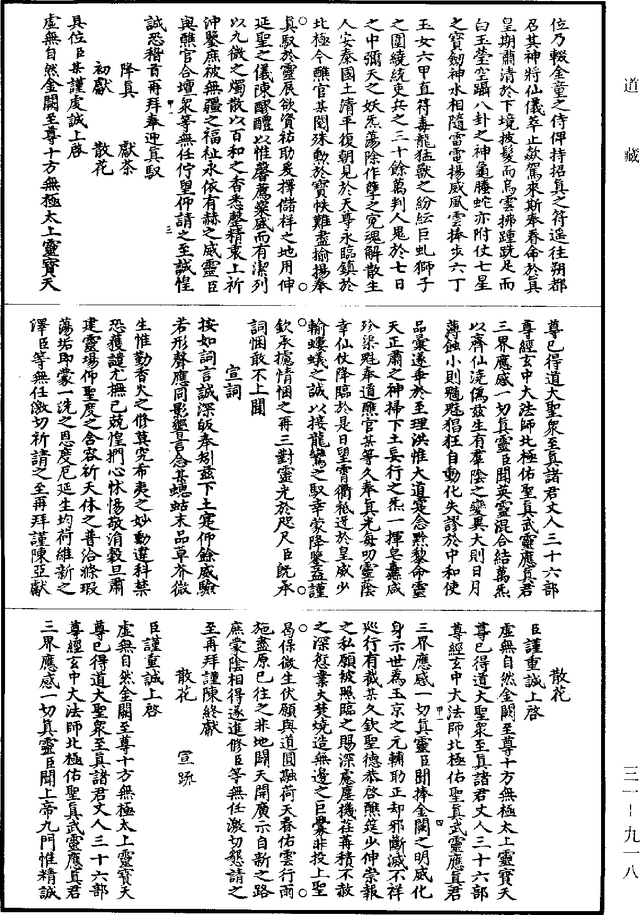 道藏
三一－九一八
位乃輟金童之侍俾持招真之符遥往朔都
召其神將仙儀萃止歘駕來斯奉春命於真
皇期肅清於下境披髮而烏雲拂踵跣足而
白玉瑩空躡八卦之神龜騰蛇亦附仗七星
之寶劒神水相隨雷電揚威風雲捧步六丁
玉女六甲直符毒龍猛獸之紛紜巨虬獅子
之圍繞統吏兵之三十餘萬判人鬼於七日
之中彌天之妖炁蕩除作孽之冤魂解散生
人安泰國土清平復朝見於天尊永臨鎮於
北極今醮官某閥殊勲於寶帙難盡揄揚奉
真馭於靈辰敢資祐助爰擇儲祥之地用伸
延聖之儀陳醪醴以惟馨薦粢盛而有潔列
以九微之燭散以百和之香悉罄精衷上祈
沖鑒庶被無疆之福祉永依有赫之威靈臣
與醮官合壇衆等無任佇望仰請之至誠惶
誠恐稽首再拜奉迎真馭
降真　獻茶
初獻　散花
具位臣某謹虔誠上啓
虛無自然金闕至尊十方無極太上靈寶天
尊已得道大聖衆至真諸君丈人三十六部
尊經玄中大法師北極佑聖真武靈應真君
三界應感一切真靈臣聞英靈混合結萬炁
以齊仙澆僞茲生有羣陰之變異大則日月
薄蝕小則魑魅猖狂自動化失謬於中和使
品彙遂乖於至理洪惟大道寔念黔黎命靈
天正肅之神掃下土妄行之炁一揮皂纛咸
珍柒魁奉道醮官某等久奉真光每叨靈蔭
幸仙仗降臨於是日望霄衢秪迓於皇威少
輸螻蟻之誠以接龍鸞之馭幸蒙降鑒益謹
欽承攄情悃之再三對靈光於咫尺臣旣承
詞悃敢不上聞
宣詞
按如詞言誠深皈奉矧兹下土寔仰餘威驗
若形聲應同影響言念某蟪蛄末品草芥微
生惟勤香火之修莫究希夷之妙動違科禁
恐獲譴尤撫己兢惶捫心怵惕敬消穀旦肅
建靈場仰聖度之含容祈天休之普洽滌瑕
蕩垢即蒙一洗之恩度厄延生均荷維新之
澤臣等無任激切祈請之至再拜謹陳亞獻
散花
臣謹重誠上啓
虛無自然金闕至尊十方無極太上靈寶天
尊已得道大聖衆至真諸君丈人三十六部
尊經玄中大法師北極佑聖真武靈應真君
三界應感一切真靈臣聞捧金闕之明威化
身示世爲玉京之元輔助正却邪斷滅不祥
巡行有截某久欽聖德恭啓醮筵少伸崇報
之私願被照臨之賜深慮塵機荏苒積不赦
之深愆業火焚燒造無邊之巨釁非投上聖
曷保微生伏願與道圓融荷天眷佑雲行雨
施盡原已往之非地闢天開廣示自新之路
庶蒙陰相得遂進修臣等無任激切懇請之
至再拜謹陳終獻
散花　宣疏
臣謹重誠上啓
虛無自然金闕至尊十方無極太上靈寶天
尊已得道大聖衆至真諸君丈人三十六部
尊經玄中大法師北極佑聖真武靈應真君
三界應感一切真靈臣聞上帝九門惟精誠